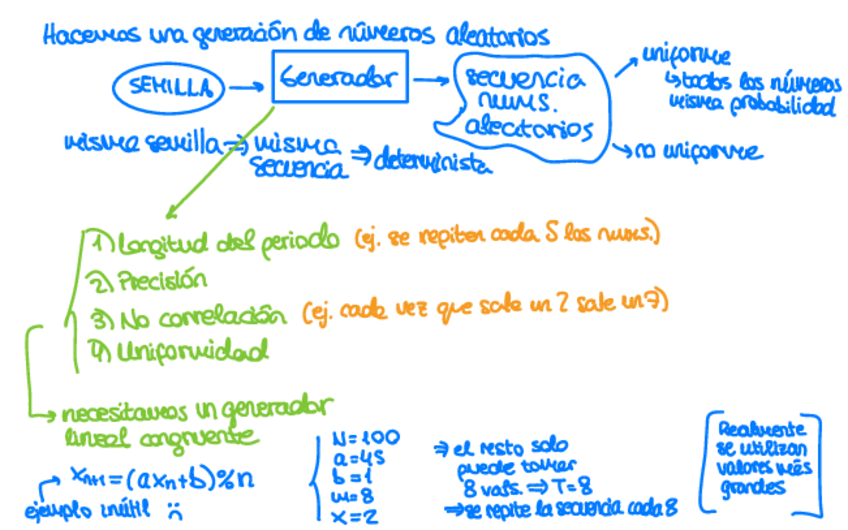 Hacemos una generación de números aleatorios
SEMILLA
Generador
secuencia
nums.
aleatorios
uniforme
↳ todos los números
misma probabilidad
no uniforme
misma semilla ⇒ misma
secuencia ⇒ determinista
1) Longitud del periodo (ej. se repiten cada 5 los nums.)
2) Precisión
3) No correlación (ej. cada vez que sale un 2 sale un 7)
4) Uniformidad
necesitamos un generador
lineal congruente
Xn+1 = (axn+b)%n
ejemplo inútil :(
N=100
a=45
b=1
m=8
x=2
⇒ el resto solo
puede tomar
8 vals. ⇒ T=8
⇒ se repite la secuencia cada 8
Realmente
se utilizan
valores más
grandes